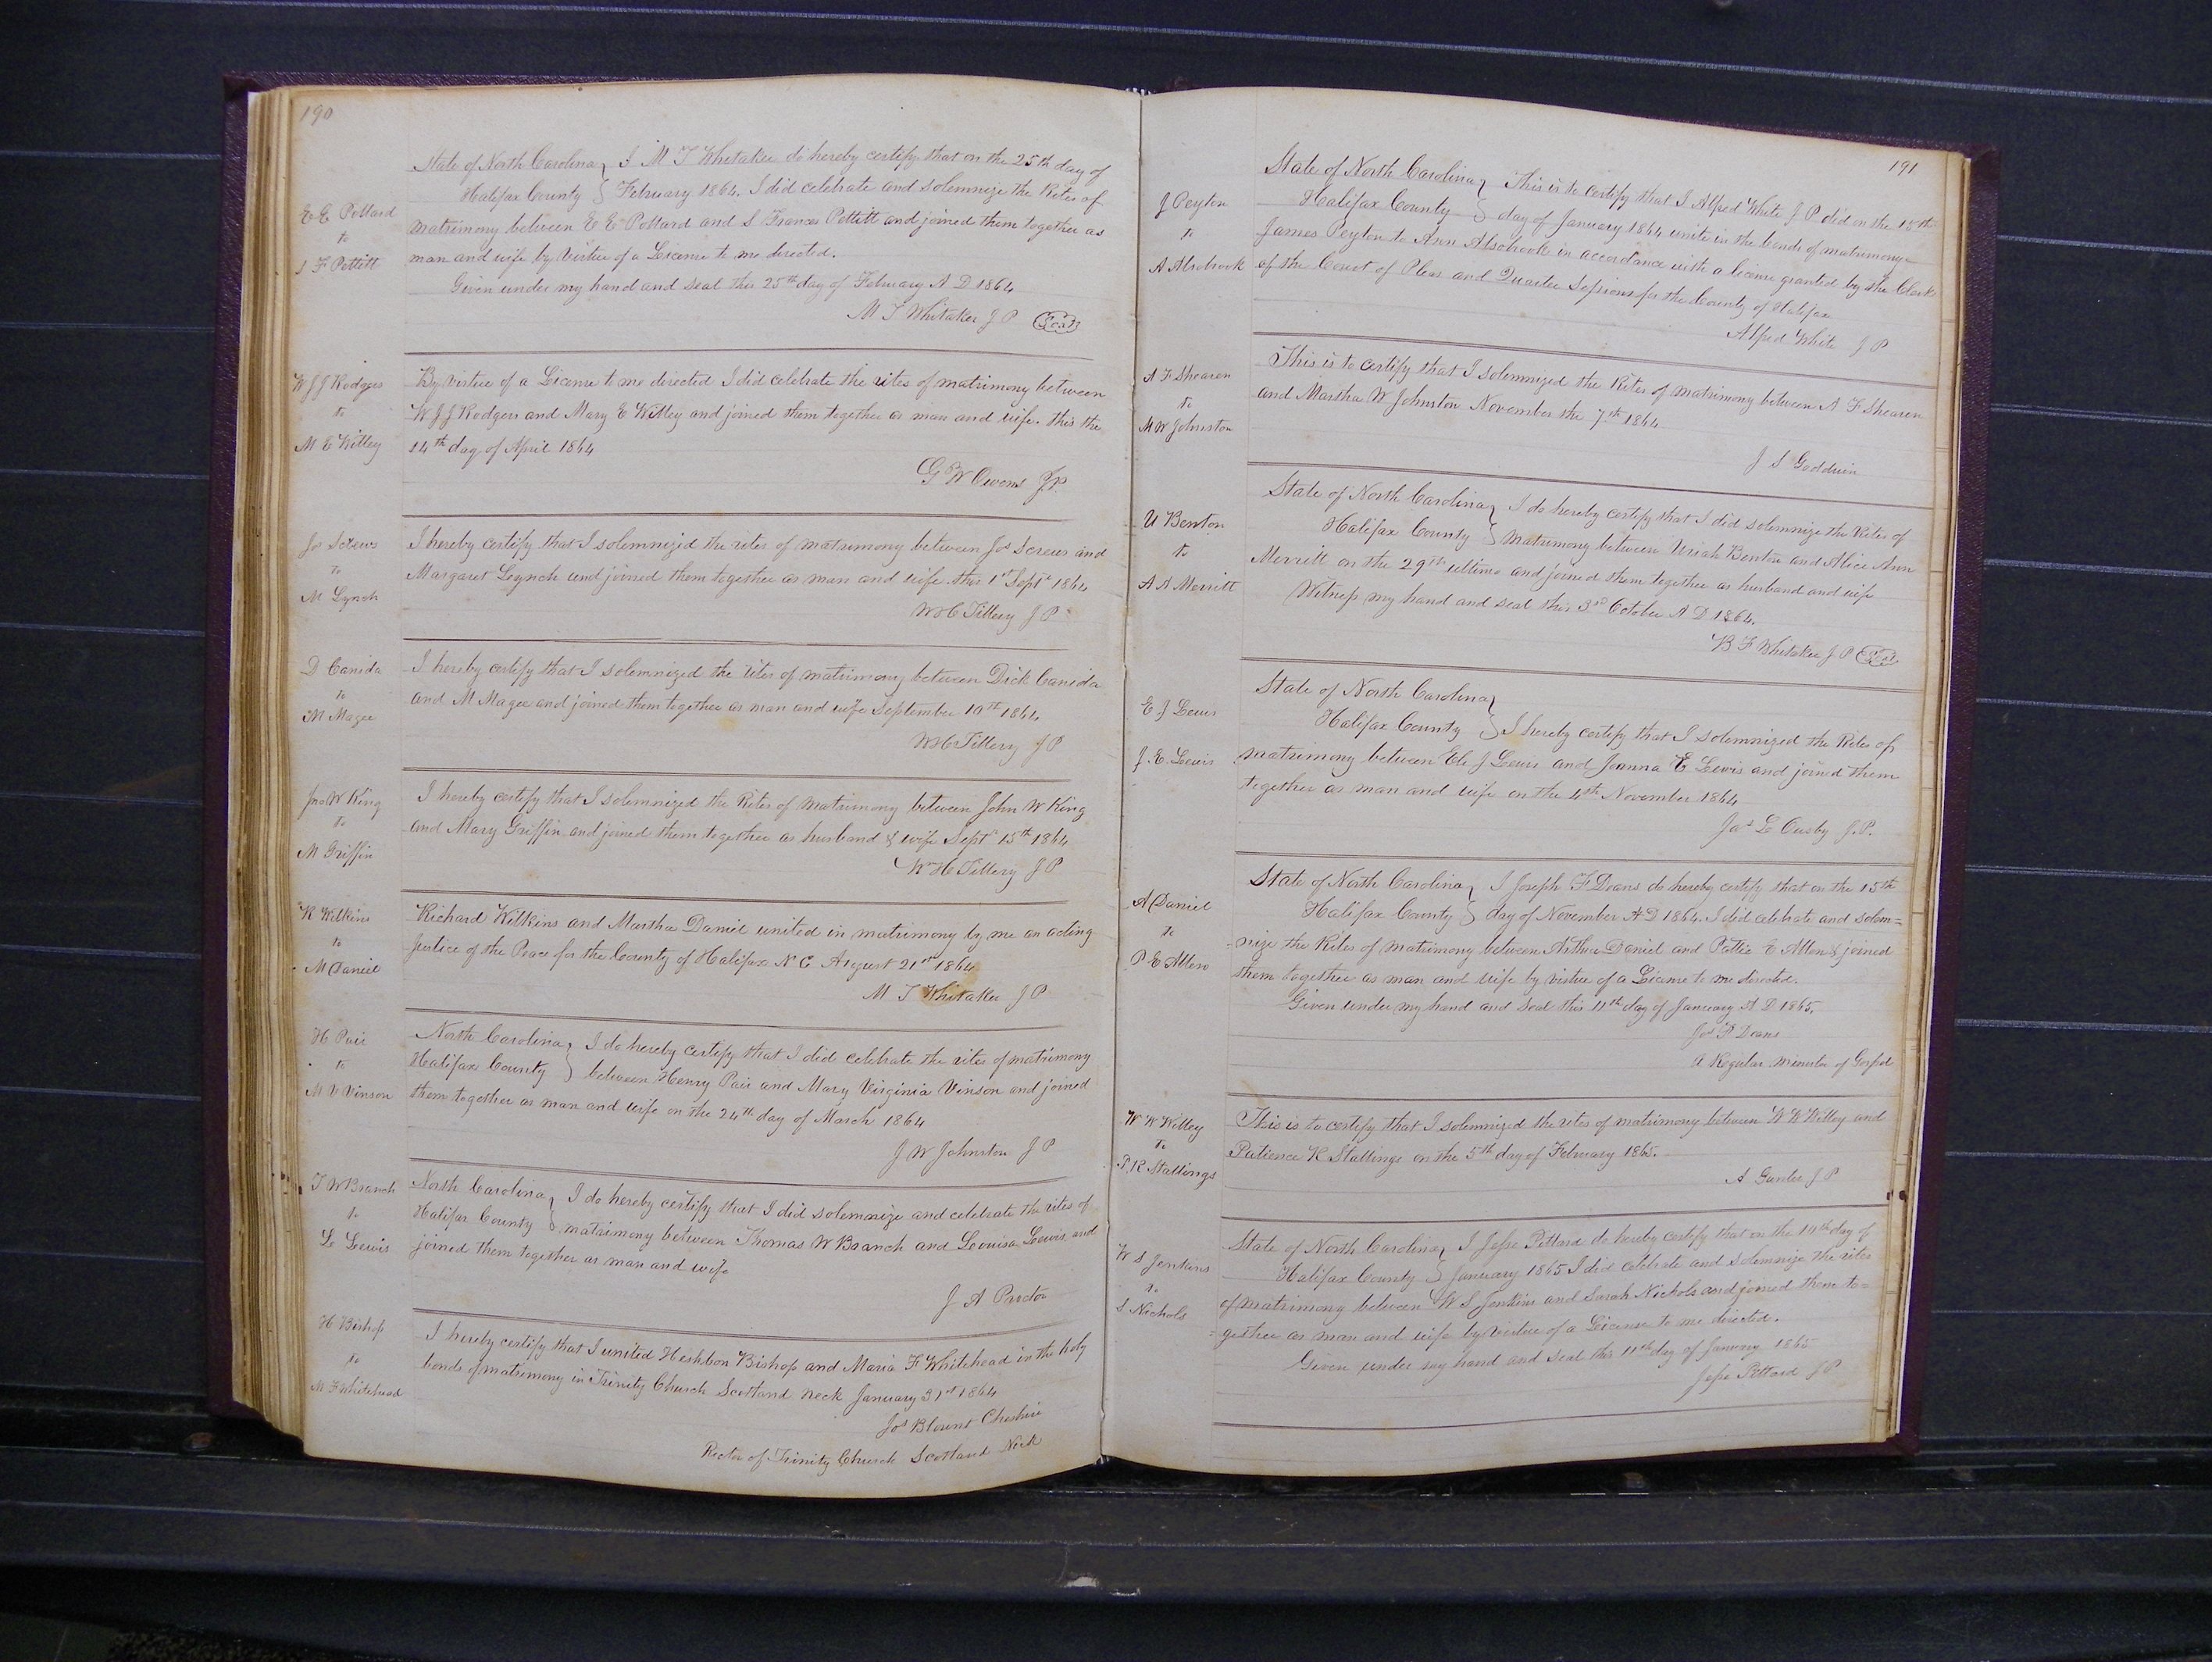 190
State of North Carolina } I M T Whitaker do hereby certify that on the 25th day of
Halifax County } February 1864. I did celebrate and solemnize the Rites of
E E Pottard
to
S F Pettitt
matrimony between E E Pottard and S Frances Pettitt and joined them together as
man and wife by Virtue of a License to me directed.
Given under my hand and seal this 25th day of February A D 1864
M T Whitaker J P Seal
W J J Rodgers
to
M E Willey
By Virtue of a License to me directed I did celebrate the rites of matrimony between
W J J Rodgers and Mary E Willey and joined them together as man and wife. this the
14th day of April 1864
G W Owens JP.
Jos Screws
To
M Lynch
I hereby certify that I solemnized the rites of matrimony between Jos Screws and
Margaret Leynch and joined them together as man and wife this 1st Sept 1864
W H Tillery J P
D Canida
to
M Magee
I hereby certify that I solemnized the rites of matrimony between Dick Canida
and M Magee and joined them together as man and wife September 10th 1864
W H Tillery J P
Jno W King
To
M Griffin
I hereby certify that I solemnized the Rites of Matrimony between John W King
and Mary Griffin and joined them together as husband & wife Sept 15th 1864
W H Tillery J P
R Wilkins
to
M Daniel
Richard Wilkins and Martha Daniel united in matrimony by me an acting
Justice of the Peace for the County of Halifax N C August 21st 1864
M T Whitaker J P
H Pair
to
M V Vinson
North Carolina } I do hereby certify that I did celebrate the rites of matrimony
Halifax County } between Henry Pair and Mary Virginia Vinson and joined
them together as man and wife on the 24th day of March 1864
J W Johnston J P
T W Branch
to
L Lewis
North Carolina } I do hereby certify that I did solemnize and celebrate the rites of
Halifax County } matrimony between Thomas W Branch and Louisa Lewis and
joined them together as man and wife
J A Proctor
H Bishop
to
M F Whitehead
I hereby certify that I united Heshbon Bishop and Maria F Whitehead in the holy
bonds of matrimony in Trinity Church Scotland Neck January 31st 1864
Jos Blount Cheshire
Rector of Trinity Church Scotland Neck
191
J Peyton
to
A Alsobrook
State of North Carolina } This is to certify that I Alfred White J P did on the 15th
Halifax County } day of January 1864 unite in the bonds of matrimony
James Peyton to Ann Alsobrook in accordance with a license granted by the Clerk
of the Court of Pleas and Quarter Sessions for the County of Halifax
Alfred White J P
A F Shearen
to
M W Johnston
This is to certify that I solemnized the Rites of matrimony between A F Shearen
and Martha W Johnston November the 7th 1864
J S Gooldwin
U Benton
to
A A Merritt
State of North Carolina } I do hereby certify that I did solemnize the Rites of
Halifax County } Matrimony between Uriah Benton and Alice Ann
Merritt on the 29th ultimo and joined them together as husband and wife
Witness my hand and seal this 3rd October A D 1864.
B F Whitaker J P Seal
E J Lewis
J E Lewis
State of North Carolina }
Halifax County } I hereby certify that I solemnized the Rites of
matrimony between Eli J Lewis and Joanna E Lewis and joined them
together as man and wife on the 4th November 1864
Jas L Ousby J.P.
A Daniel
to
P E Allen
State of North Carolina } I Joseph F Deans do hereby certify that on the 15th
Halifax County } day of November A D 1864. I did celebrate and solem=
=nize the Rites of matrimony between Arthur Daniel and Pattie E Allen & joined
them together as man and wife by virtue of a License to me directed.
Given under my hand and seal this 11th day of January A D 1865.
Jos F Deans
A Regular minister of Gospel
W W Willey
To
P. R Stallings
This is to certify that I solemnized the rites of matrimony between W W Willey and
Patience R Stallings on the 5th day of February 1865.
A Gunter J P
W S Jenkins
to
S Nichols
State of North Carolina } I Jesse Pittard do hereby certify that on the 10th day of
Halifax County } January 1865 I did celebrate and solemnize the rites
of matrimony between W S Jenkins and Sarah Nichols and joined them to=
=gether as man and wife by virtue of a License to me directed.
Given under my hand and seal this 11th day of January 1865
Jesse Pittard J P